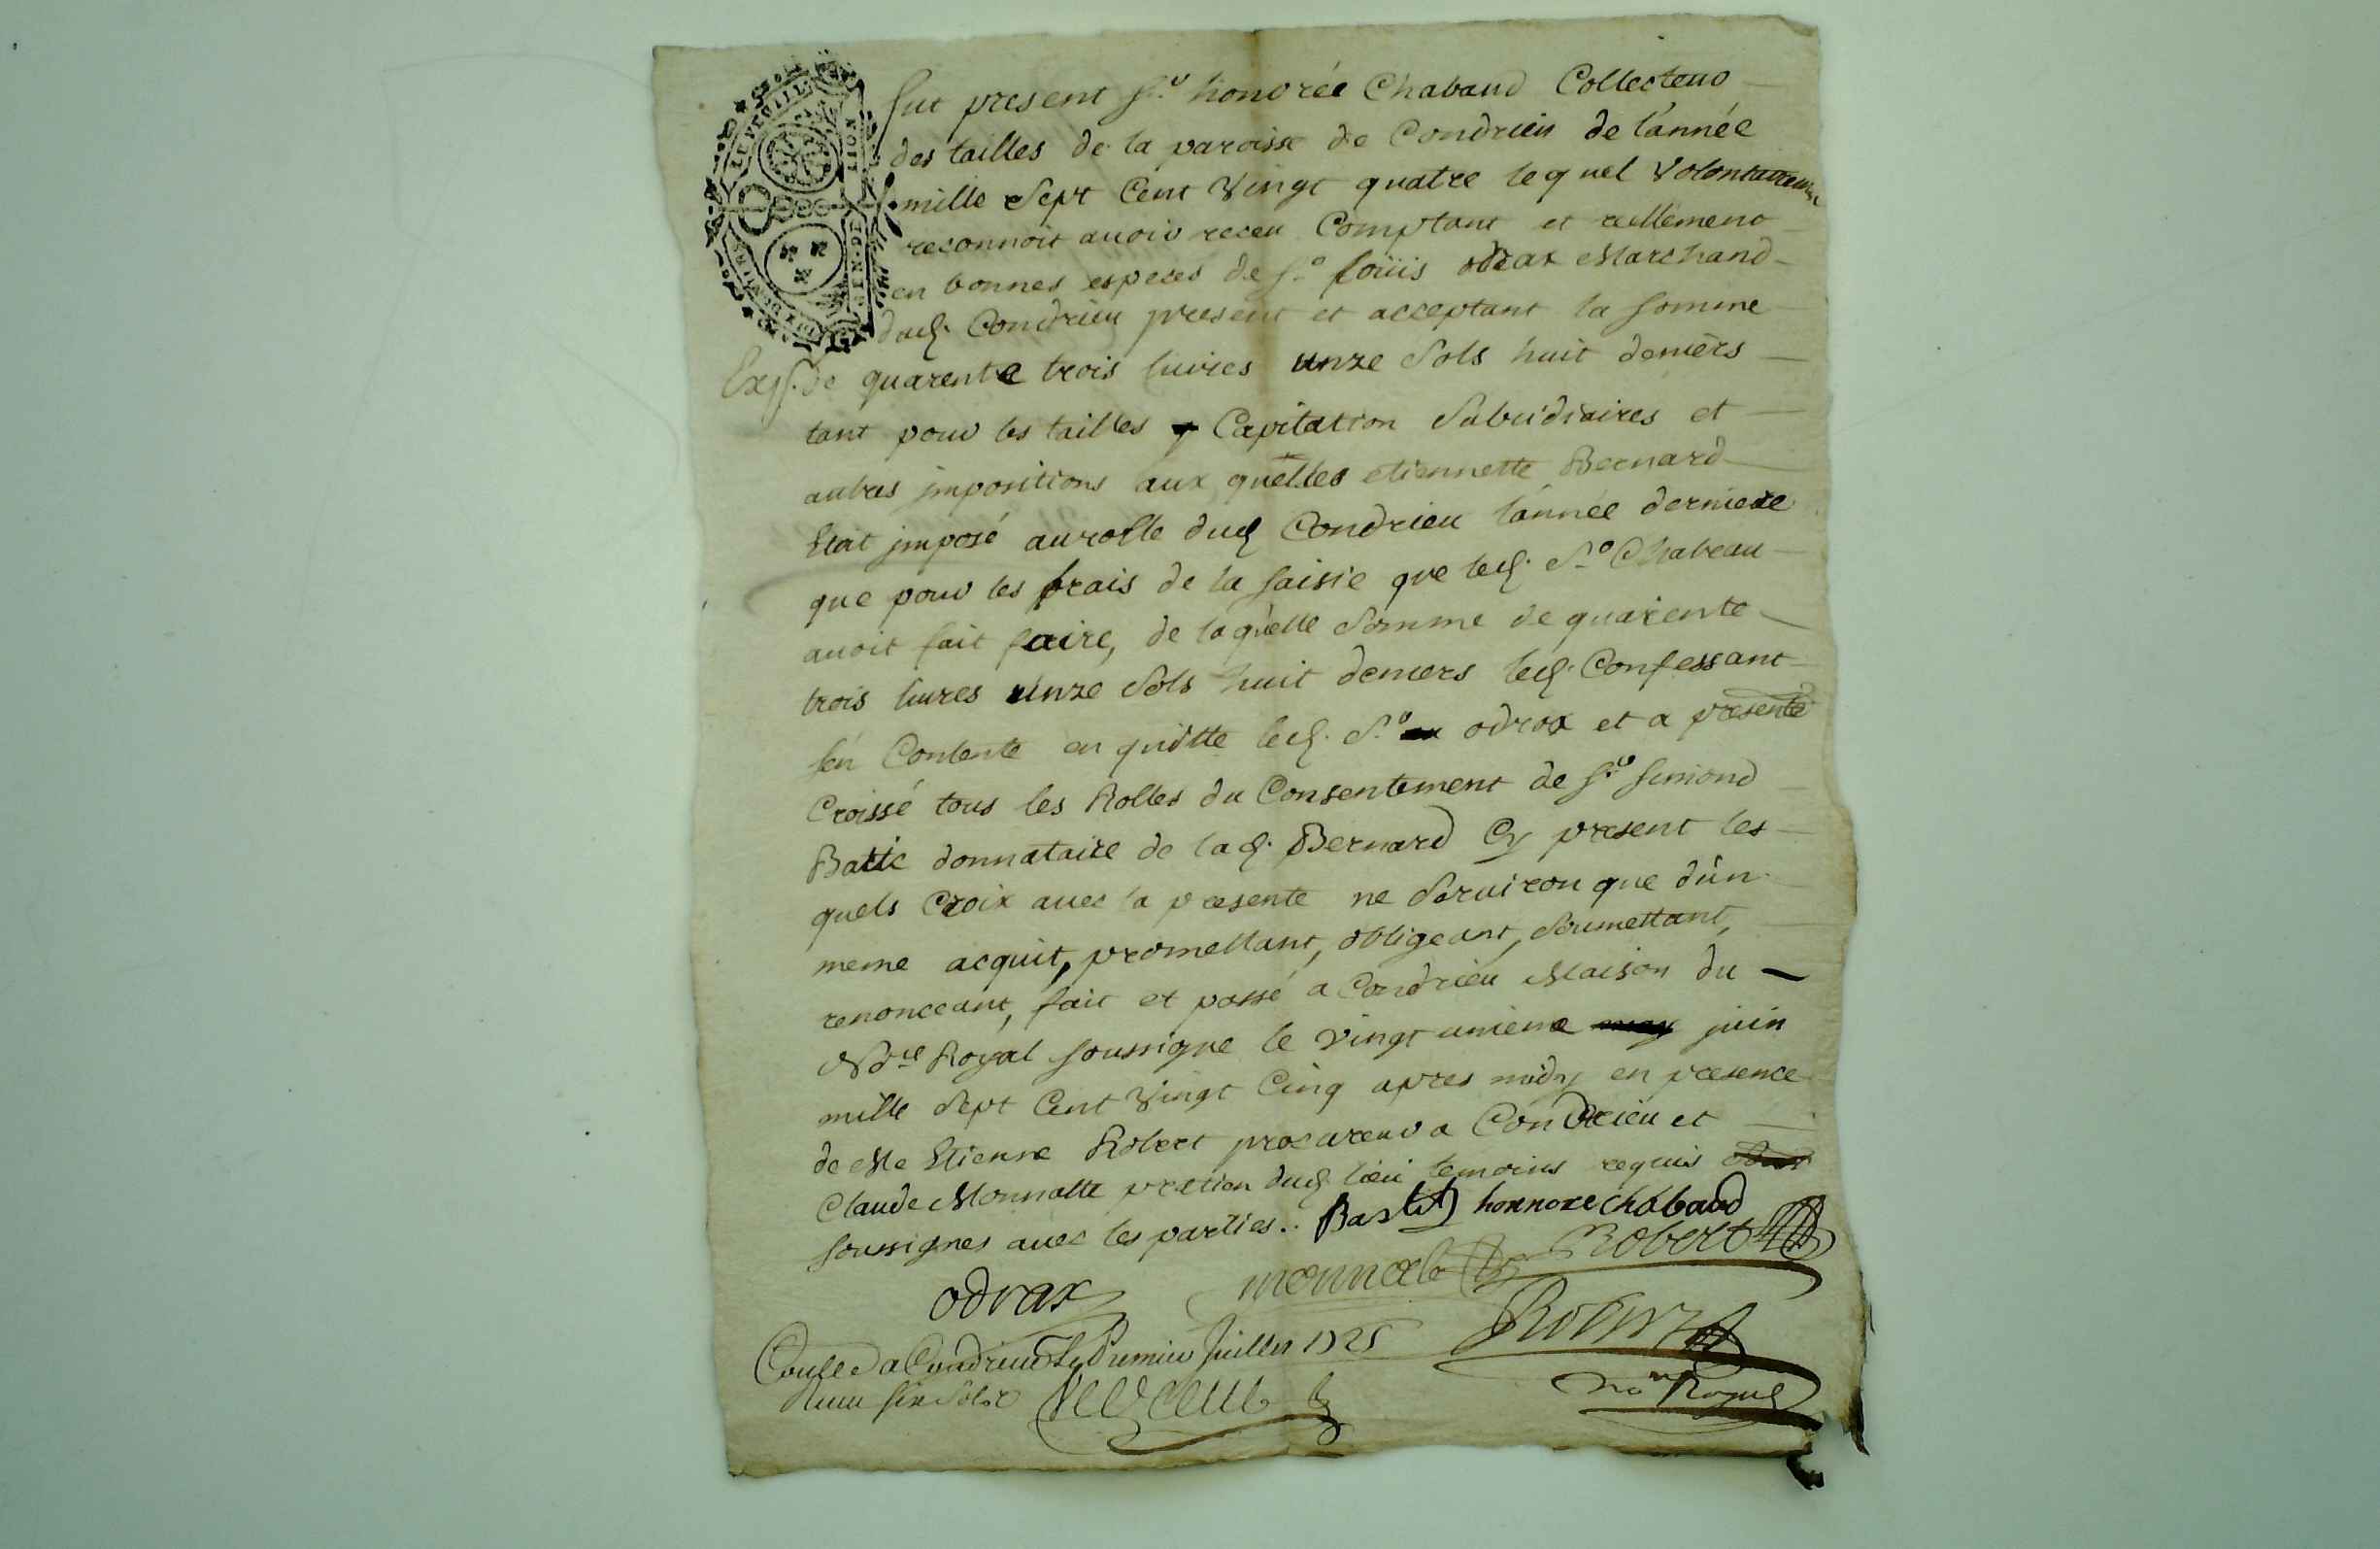 fut present Sr. honorée Chabaud Collecteur
des tailles de la paroisse de Condrieu de l'année
mille Sept Cent Vingt quatre lequel Volontairement
reconnoit avoir receu Comptant et reellement
en bonnes especes de Sr. Loüis odrax Marchand
dud. Condrieu present et acceptant la Somme
Exp. de quarente trois livres unze Sols huit deniers
tant pour les tailles Capitation Subsidiaires et
autres impositions aux quelles etiennette Bernard
Etoit imposé au rolle dud Condrieu l'année derniere
que pour les frais de la Saisie que led. Sr. Chabeau
avoit fait faire, de laquelle Somme de quarente
trois livres Unze Sols huit deniers led. Confessant
s'en Contente en quitte led. Sr. odrax et a presenté
Croissé tous les Rolles du Consentement de Sr. Simond
donnataire de lad. Bernard Cy present les
quels Croix avec la presente ne Serviron que d'un
meme acquit, promettant, obligeant, Soumettant,
renonceant, fait et passé a Condrieu Maison du
Nore Royal soussigne le Vingt unieme may juin
mille Sept Cent Vingt Cinq apres midy en presence
de Me Etienne Robert procureur a Condrieu et
Claude Monnatte praticien dud lieu temoins requis
soussignes avec les parties. honnore Chabaud
Robert
odrax
Conlle a Condrieu Le Premier Juillet 1725
six Sols
no. Royal
LION
GEN. DE